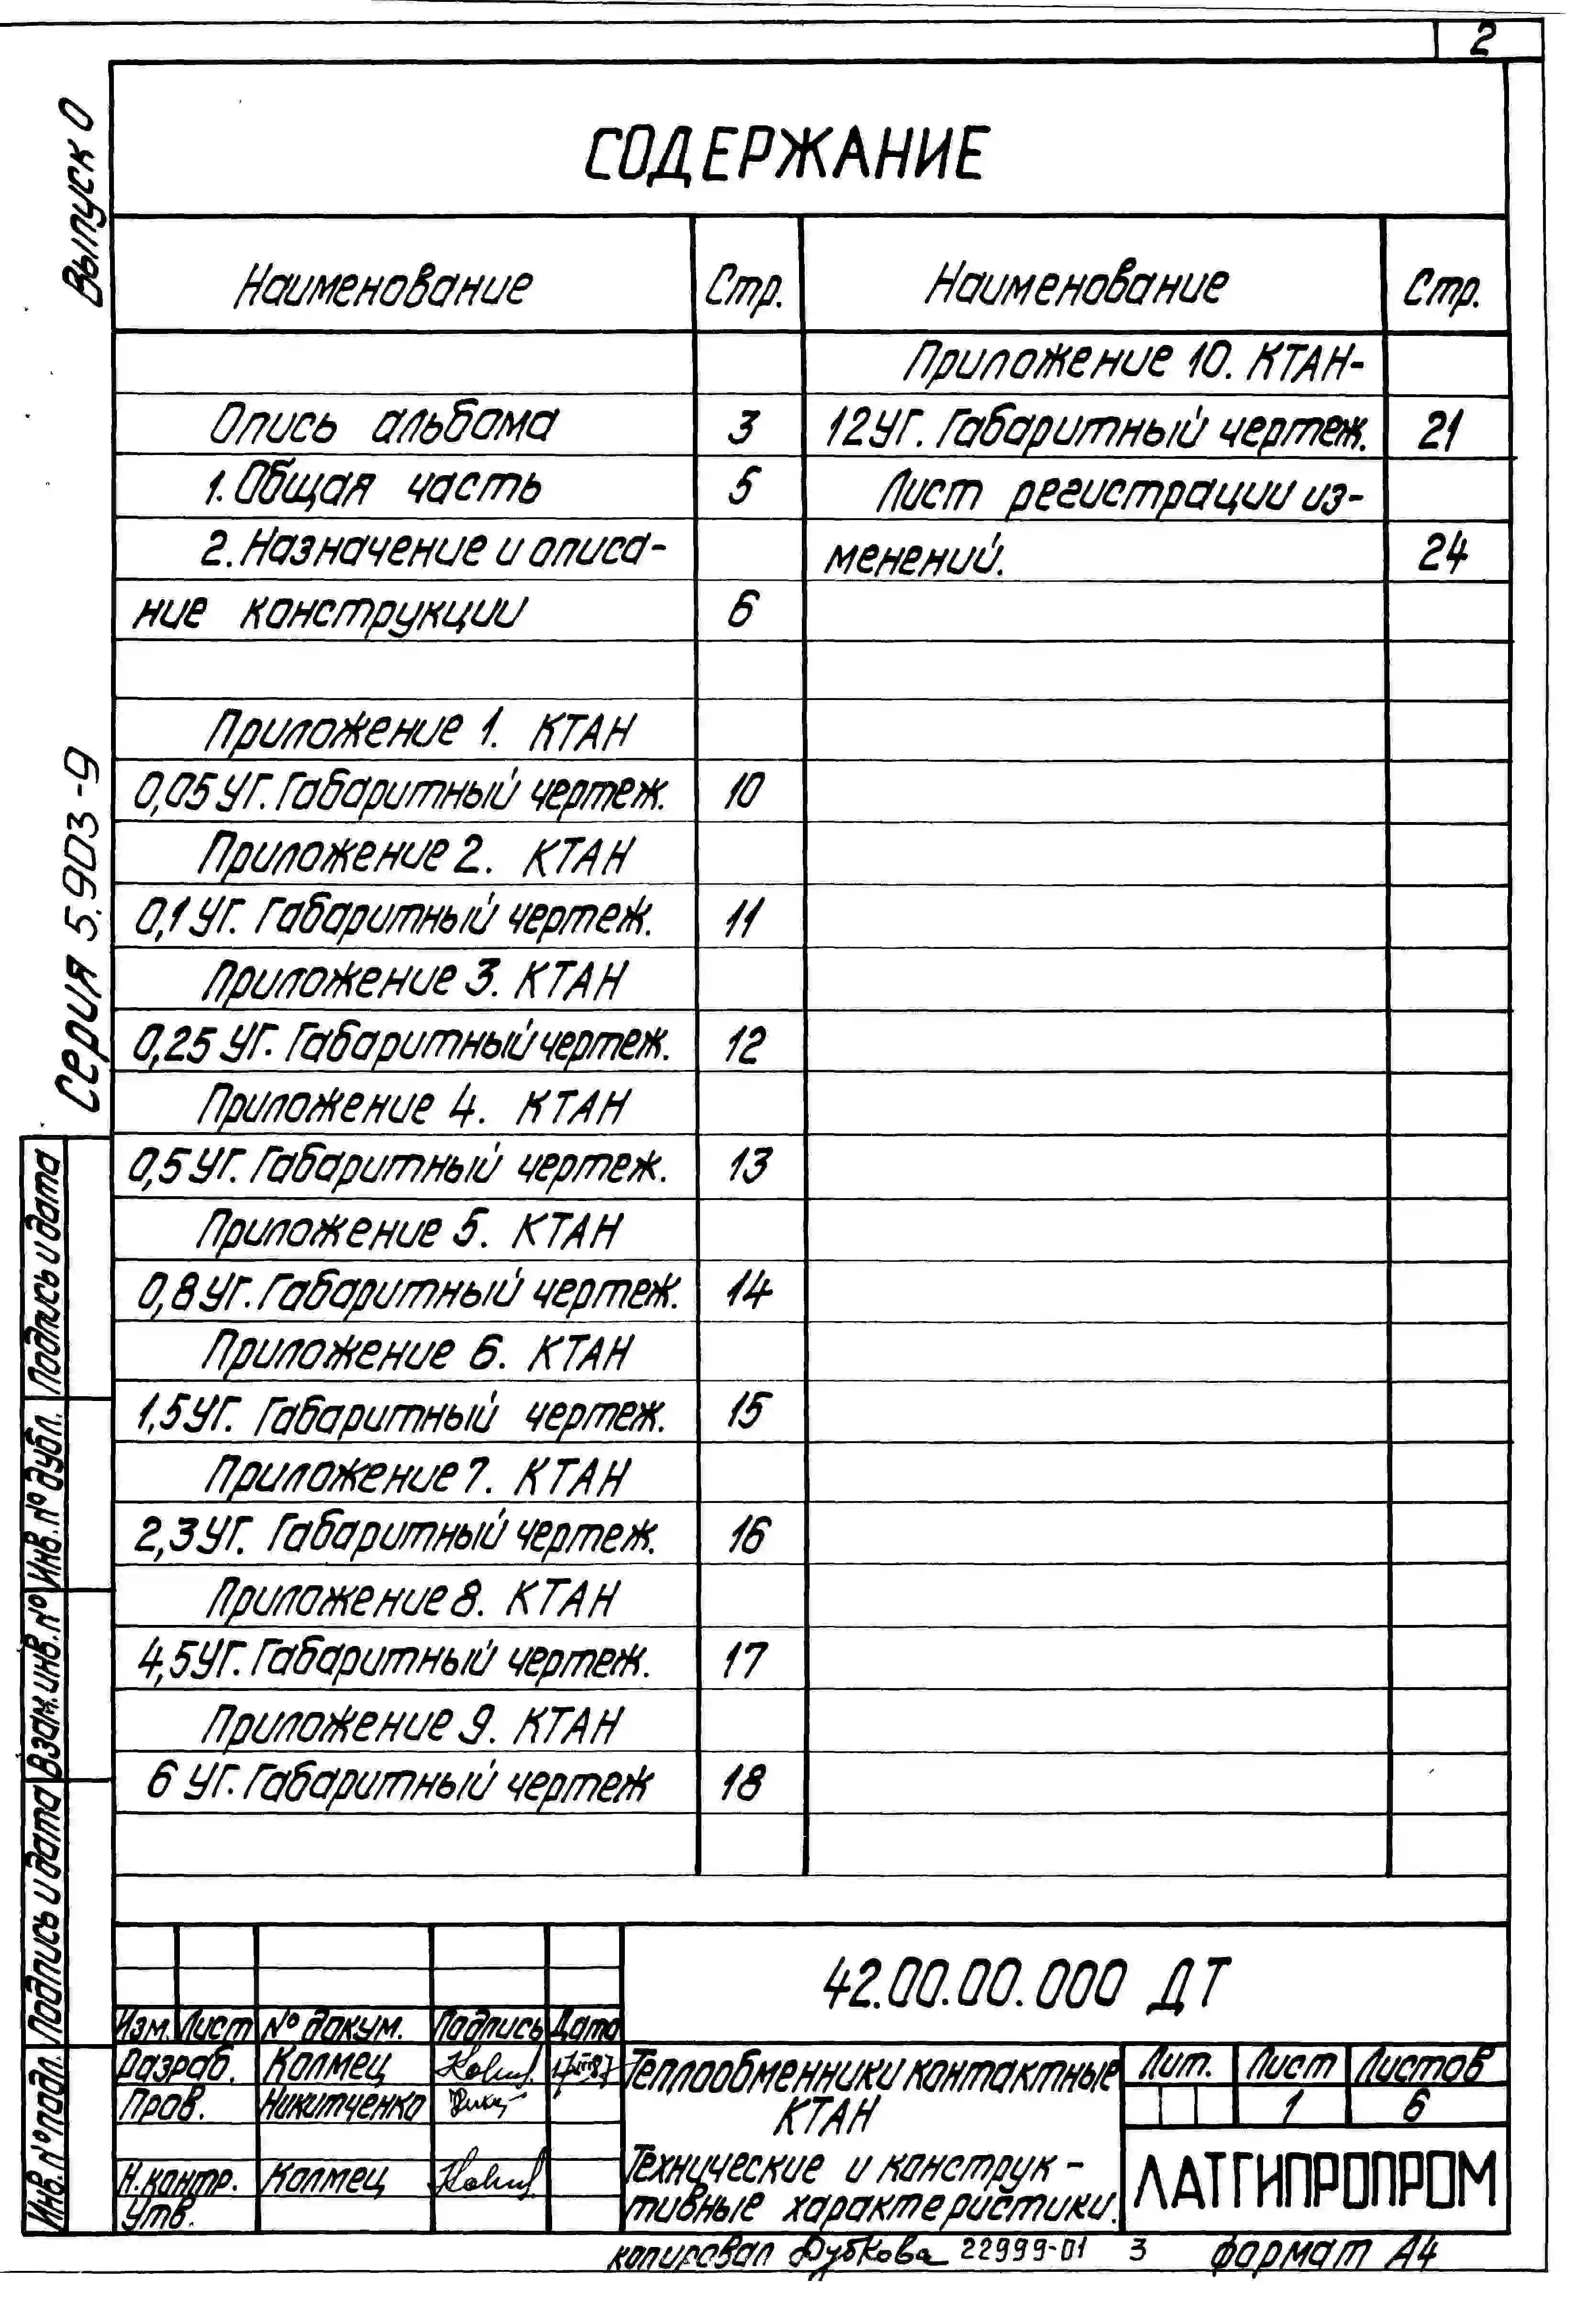 2
Выпуск 0
Серия 5.903-9
СОДЕРЖАНИЕ
Наименование Стр.
Опись альбома 3
1. Общая часть 5
2. Назначение и описа-
ние конструкции 6
Приложение 1. КТАН
0,05 УГ. Габаритный чертеж. 10
Приложение 2. КТАН
0,1 УГ. Габаритный чертеж. 11
Приложение 3. КТАН
0,25 УГ. Габаритный чертеж. 12
Приложение 4. КТАН
0,5 УГ. Габаритный чертеж. 13
Приложение 5. КТАН
0,8 УГ. Габаритный чертеж. 14
Приложение 6. КТАН
1,5 УГ. Габаритный чертеж. 15
Приложение 7. КТАН
2,3 УГ. Габаритный чертеж. 16
Приложение 8. КТАН
4,5 УГ. Габаритный чертеж. 17
Приложение 9. КТАН
6 УГ. Габаритный чертеж 18
Наименование Стр.
Приложение 10. КТАН-
12 УГ. Габаритный чертеж. 21
Лист регистрации из-
менений. 24
Подпись и дата
Инв. № дубл.
Взам. инв. №
Подпись и дата
Инв. № подл.
Изм. Лист № докум. Подпись Дата
Разраб. Колмец
Пров. Никитченко
Н. контр. Колмец
Утв.
42.00.00.000 ДТ
Теплообменники контактные
КТАН
Технические и конструк-
тивные характеристики.
Лит. Лист Листов
1 6
ЛАТГИПРОПРОМ
копировал Дубкова 22999-01 3 формат А4